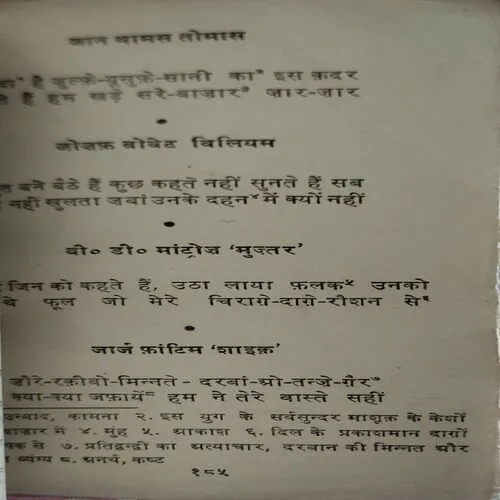 जान थामस तोमास
है ज़ुल्फ़े-यूसुफ़े-सानी का³ इस क़दर
हैं हम खड़े सरे-बाज़ार³ ज़ार-ज़ार
•
जोज़फ़ बोवेट विलियम
बने बैठे हैं कुछ कहते नहीं सुनते हैं सब
नहीं खुलता ज़बां उनके दहन⁴ में क्यों नहीं
•
बी० डी० मांट्रोज़ ‘मुज़्तर’
जिन को कहते हैं, उठा लाया फ़लक⁵ उनको
थे फूल जो मेरे चिराग़े-दाग़े-रौशन से⁶
•
जार्ज फ़ांटिम ‘शाइक़’
जौरे-रक़ीबो-मिन्नते-दरबां-ओ-तन्ज़े-ग़ैर⁷
क्या-क्या जफ़ायें⁸ हम ने तेरे वास्ते सहीं
उन्माद, कामना २. इस युग के सर्वसुन्दर माशूक़ के केशों
बाज़ार में ४. मुंह ५. आकाश ६. दिल के प्रकाशमान दाग़ों
से ७. प्रतिद्वन्द्वी का अत्याचार, दरबान की मिन्नत और
व्यंग्य ८. अनर्थ, कष्ट
१८५